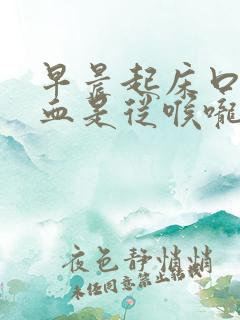 早晨起床口
血是从喉咙
夜色静悄悄
未经同意禁止转载